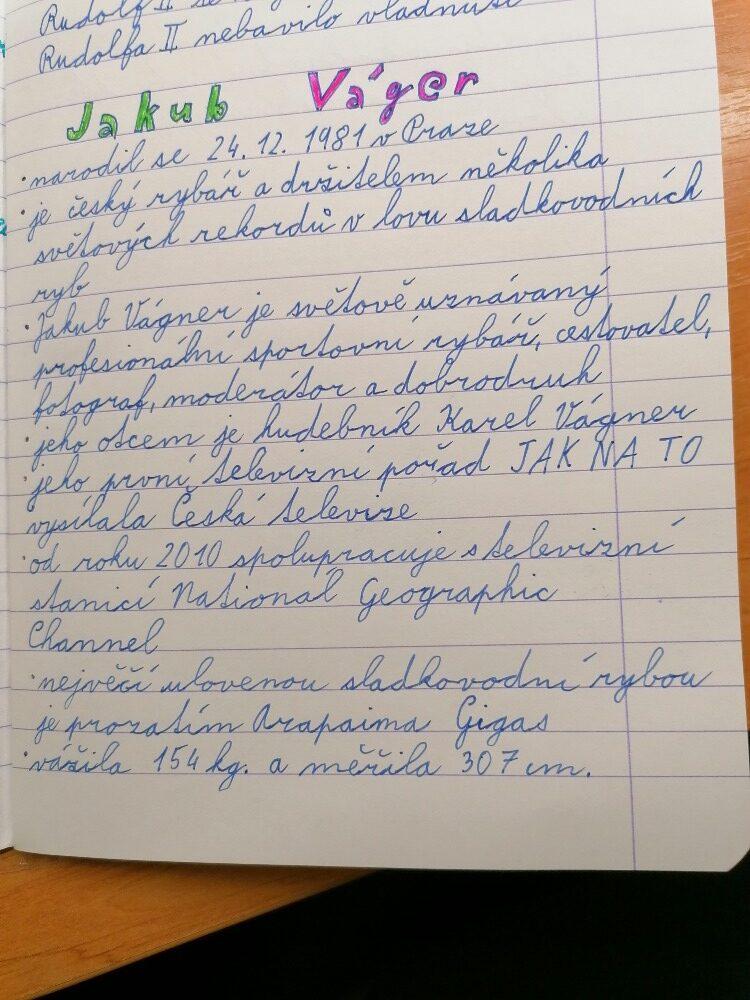 Rudolf II se
Rudolfa II nebavilo vladnutí
Jakub Váger
·narodil se 24.12. 1981 v Praze
·je český rybář a držitelem několika
světových rekordů v lovu sladkovodních
ryb
·Jakub Vágner je světově uznávaný
profesionální sportovní rybář, cestovatel,
fotograf, moderátor a dobrodruh
·jeho otcem je hudebník Karel Vágner
·jeho první televizní pořad JAK NA TO
vysílala Česká televize
·od roku 2010 spolupracuje s televizní
stanicí National Geographic
Channel
·největčí ulovenou sladkovodní rybou
je prozatím Arapaima Gigas
·vážila 154 kg. a měřila 307 cm.